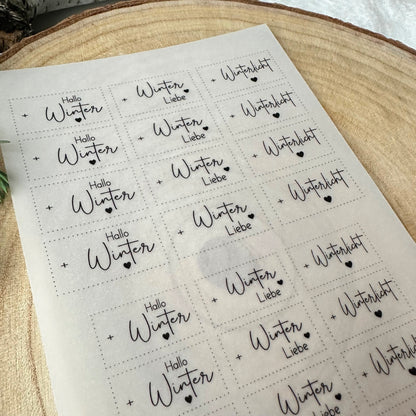 Hallo
Winter
Winter
Liebe
Winterlicht
Hallo
Winter
Winter
Liebe
Winterlicht
Hallo
Winter
Winter
Liebe
Winterlicht
Hallo
Winter
Winter
Liebe
Winterlicht
Hallo
Winter
Winter
Liebe
Winterlicht
Hallo
Winter
Winter
Liebe
Winterlicht
Winter
Winterlicht